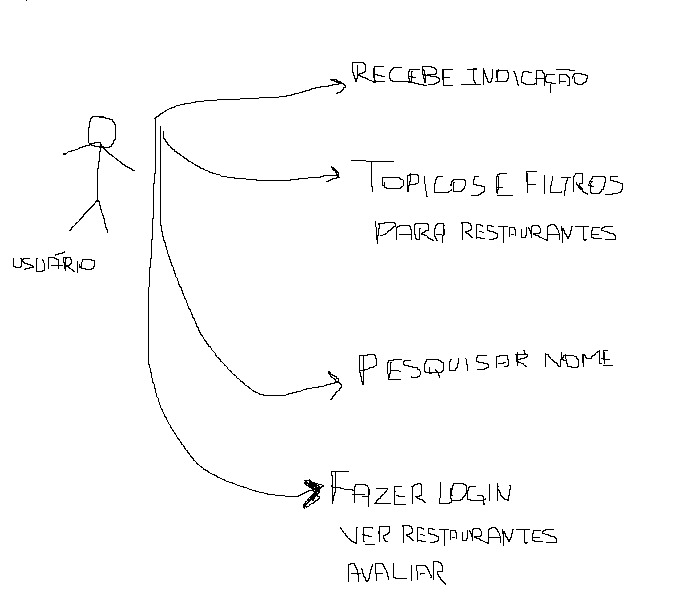 RECEBE INDICAÇÃO
TOPICOS E FILTROS
PARA RESTAURANTES
USUÁRIO
PESQUISAR NOME
FAZER LOGIN
VER RESTAURANTES
AVALIAR